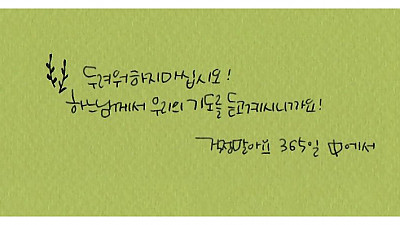 두려워하지마십시오!
하느님께서 우리의 기도를 듣고계시니까요!
걱정말아요 365일 中에서